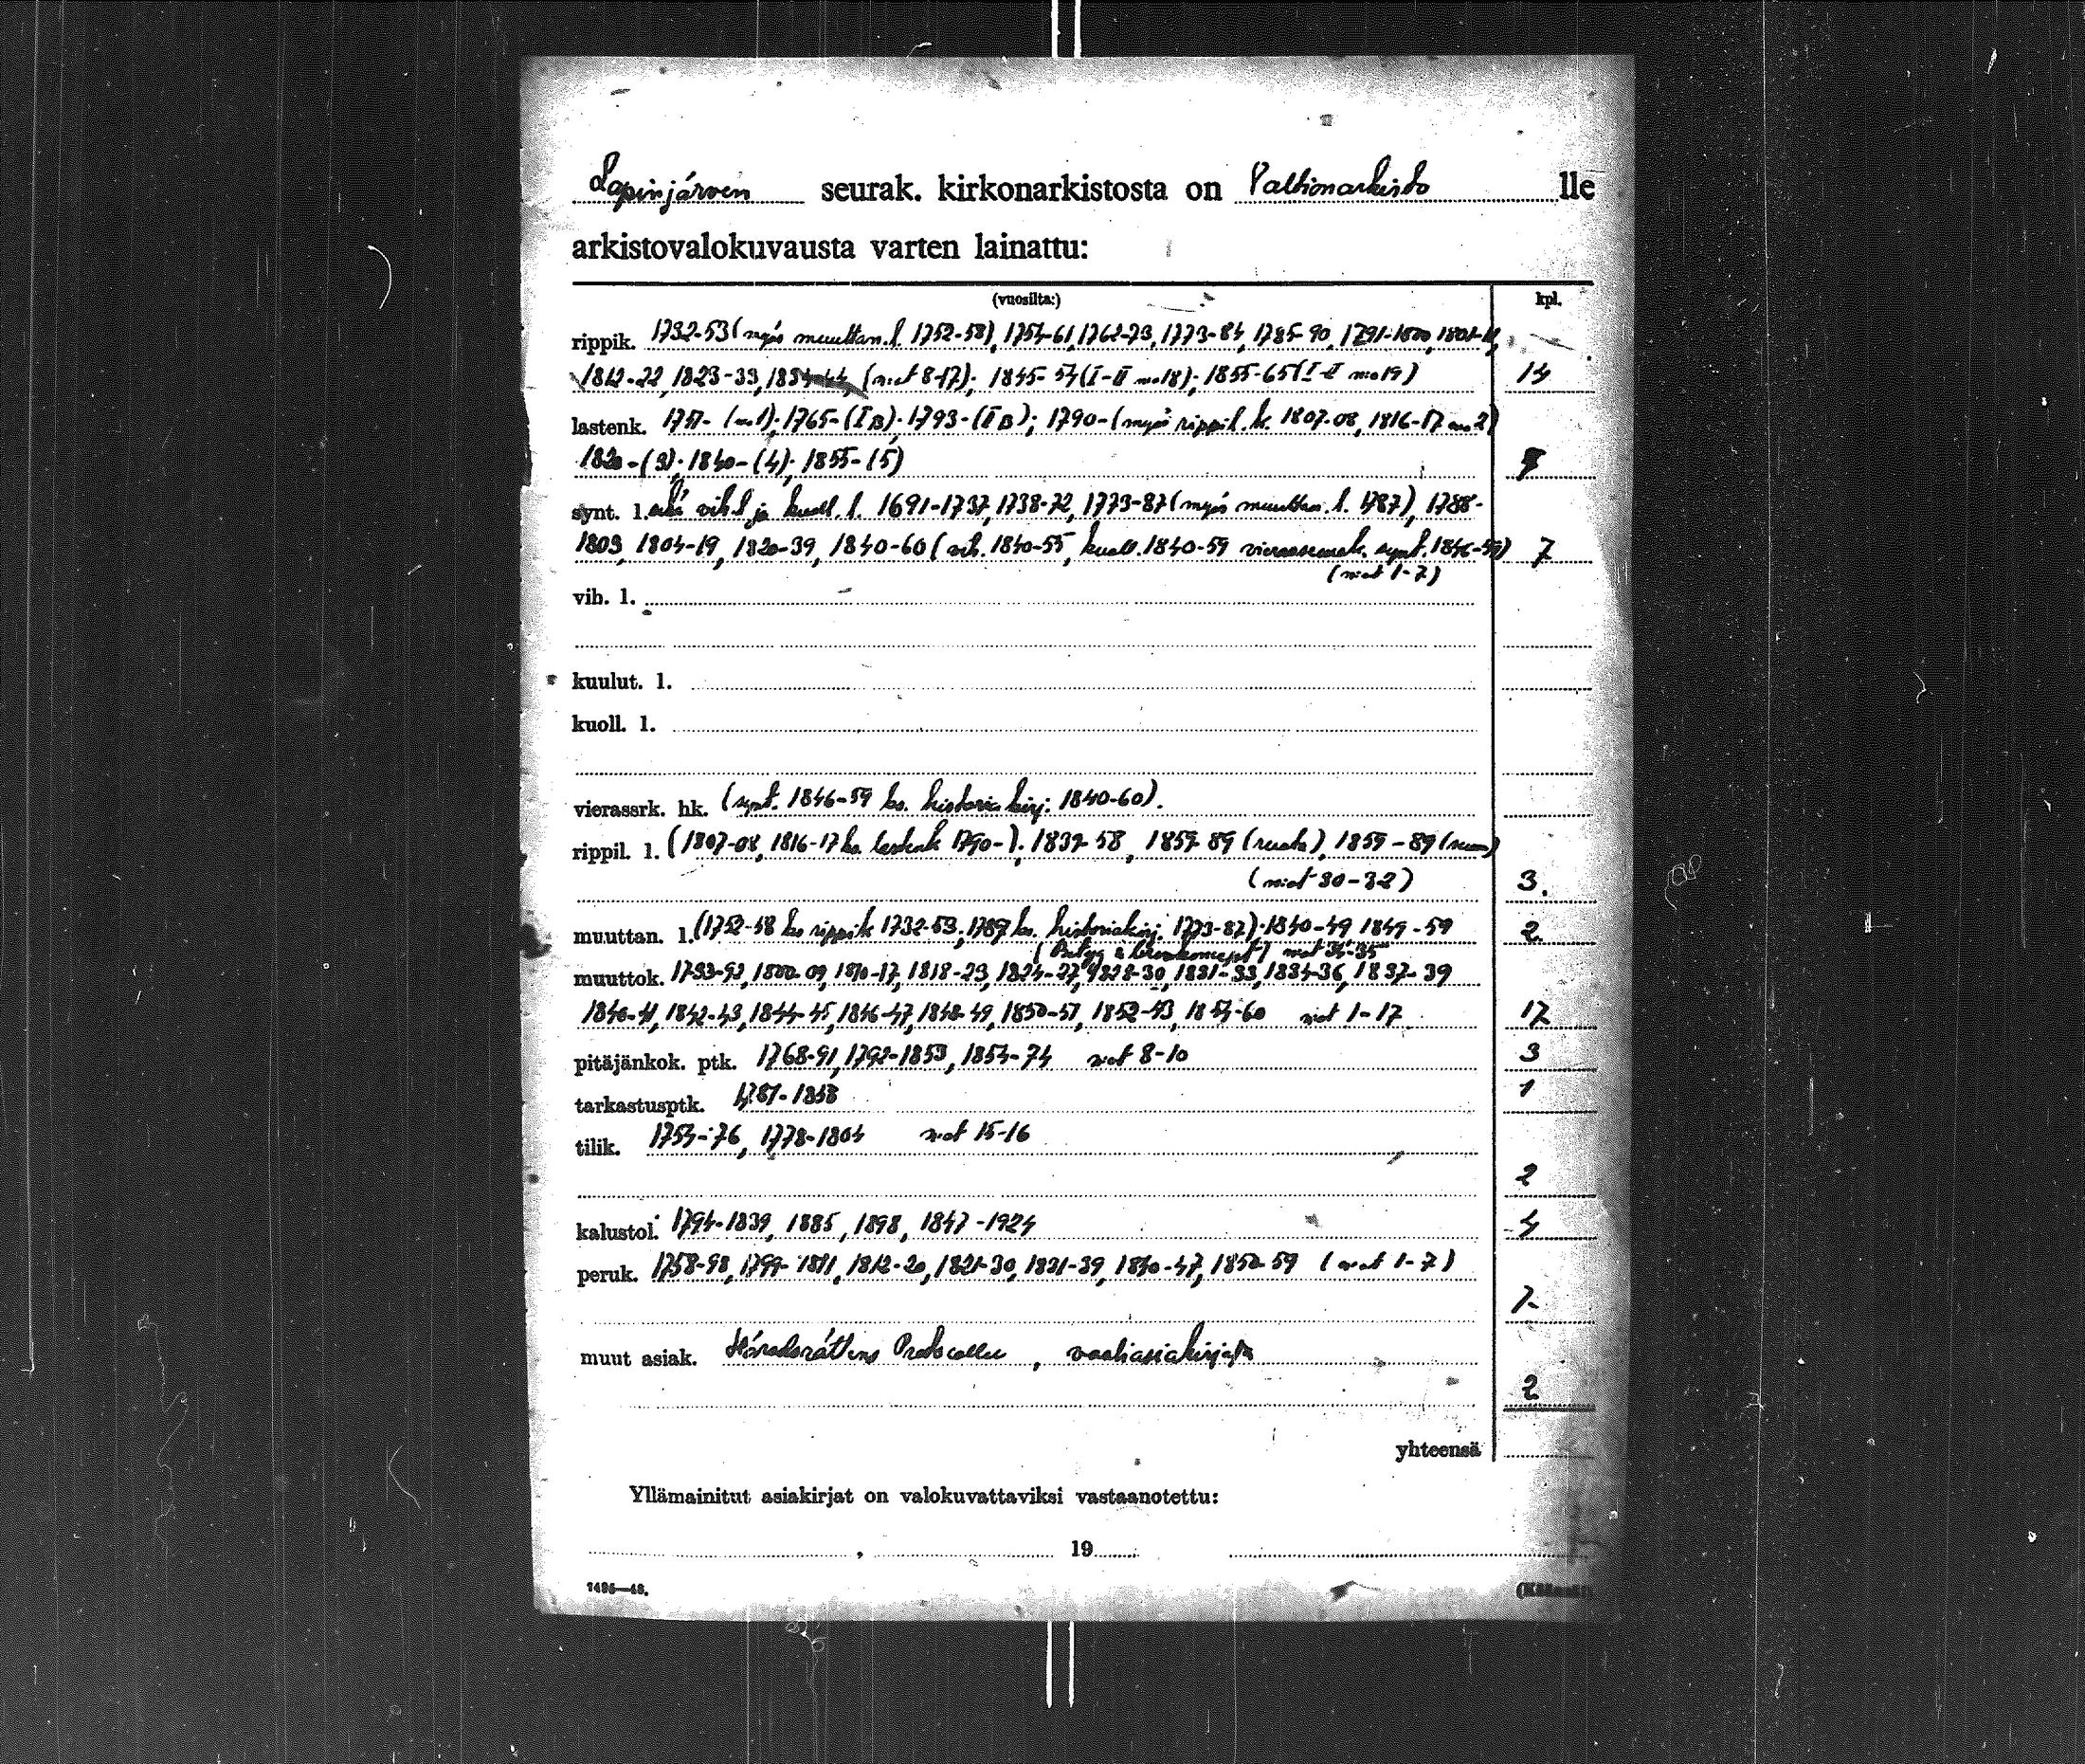 Lapinjärven seurak. kirkonarkistosta on Valtionarkisto lle
arkistovalokuvausta varten lainattu:
(vuosilta:) kpl.
rippik. 1732-53 (myös muuttan. l. 1752-58), 1754-61, 1762-73, 1773-84, 1785-90, 1791-1800, 1801-11,
1812-22, 1823-33, 1834-44, (n:ot 8-17); 1845-54 (I-II n:o 18); 1855-65 (I-II n:o 19) 14
lastenk. 1751- (n:o 1); 1765- (I B); 1793- (II B); 1790- (myös rippil. k. 1807-08, 1816-17 n:o 2)
1820- (3); 1840- (4); 1855- (5)
synt. l. vih. l. ja kuoll. l. 1691-1737, 1738-72, 1773-87 (myös muuttan. l. 1787), 1788-
1803, 1804-19, 1820-39, 1840-60 (vih. 1840-55, kuoll. 1840-59 vierasseurak. synt. 1846-59) 7
(n:ot 1-7)
vih. l.
kuulut. l.
kuoll. l.
vierassrk. hk. (synt. 1846-59 ks. historiakirj. 1840-60).
rippil. l. (1807-08, 1816-17 ks. lastenk 1790-). 1839-58, 1859-89 (ruots.), 1859-89 (suom)
(n:ot 30-32) 3.
muuttan. l. (1752-58 ks rippik 1732-53; 1787 ks. historiakirj. 1773-87). 1840-49 1849-59 2
n:ot 34-35
muuttok. 1793-92, 1800-09, 1810-17, 1818-23, 1824-27, 1828-30, 1831-33, 1834-36, 1837-39
1840-41, 1842-43, 1844-45, 1846-47, 1848-49, 1850-51, 1852-53, 1854-60 n:ot 1-17 17
pitäjänkok. ptk. 1768-91, 1792-1853, 1854-74 n:ot 8-10 3
tarkastusptk. 1781-1858 1
tilik. 1754-76, 1778-1804 n:ot 15-16
2
kalustol. 1794-1839, 1885, 1898, 1847-1924 4
peruk. 1758-98, 1799-1811, 1812-20, 1821-30, 1831-39, 1840-47, 1850-59 (n:ot 1-7)
7
muut asiak. Häradsrättens Protocoller, vaaliasiakirjoja
2
yhteensä
Yllämainitut asiakirjat on valokuvattaviksi vastaanotettu:
, 19
1495—48.